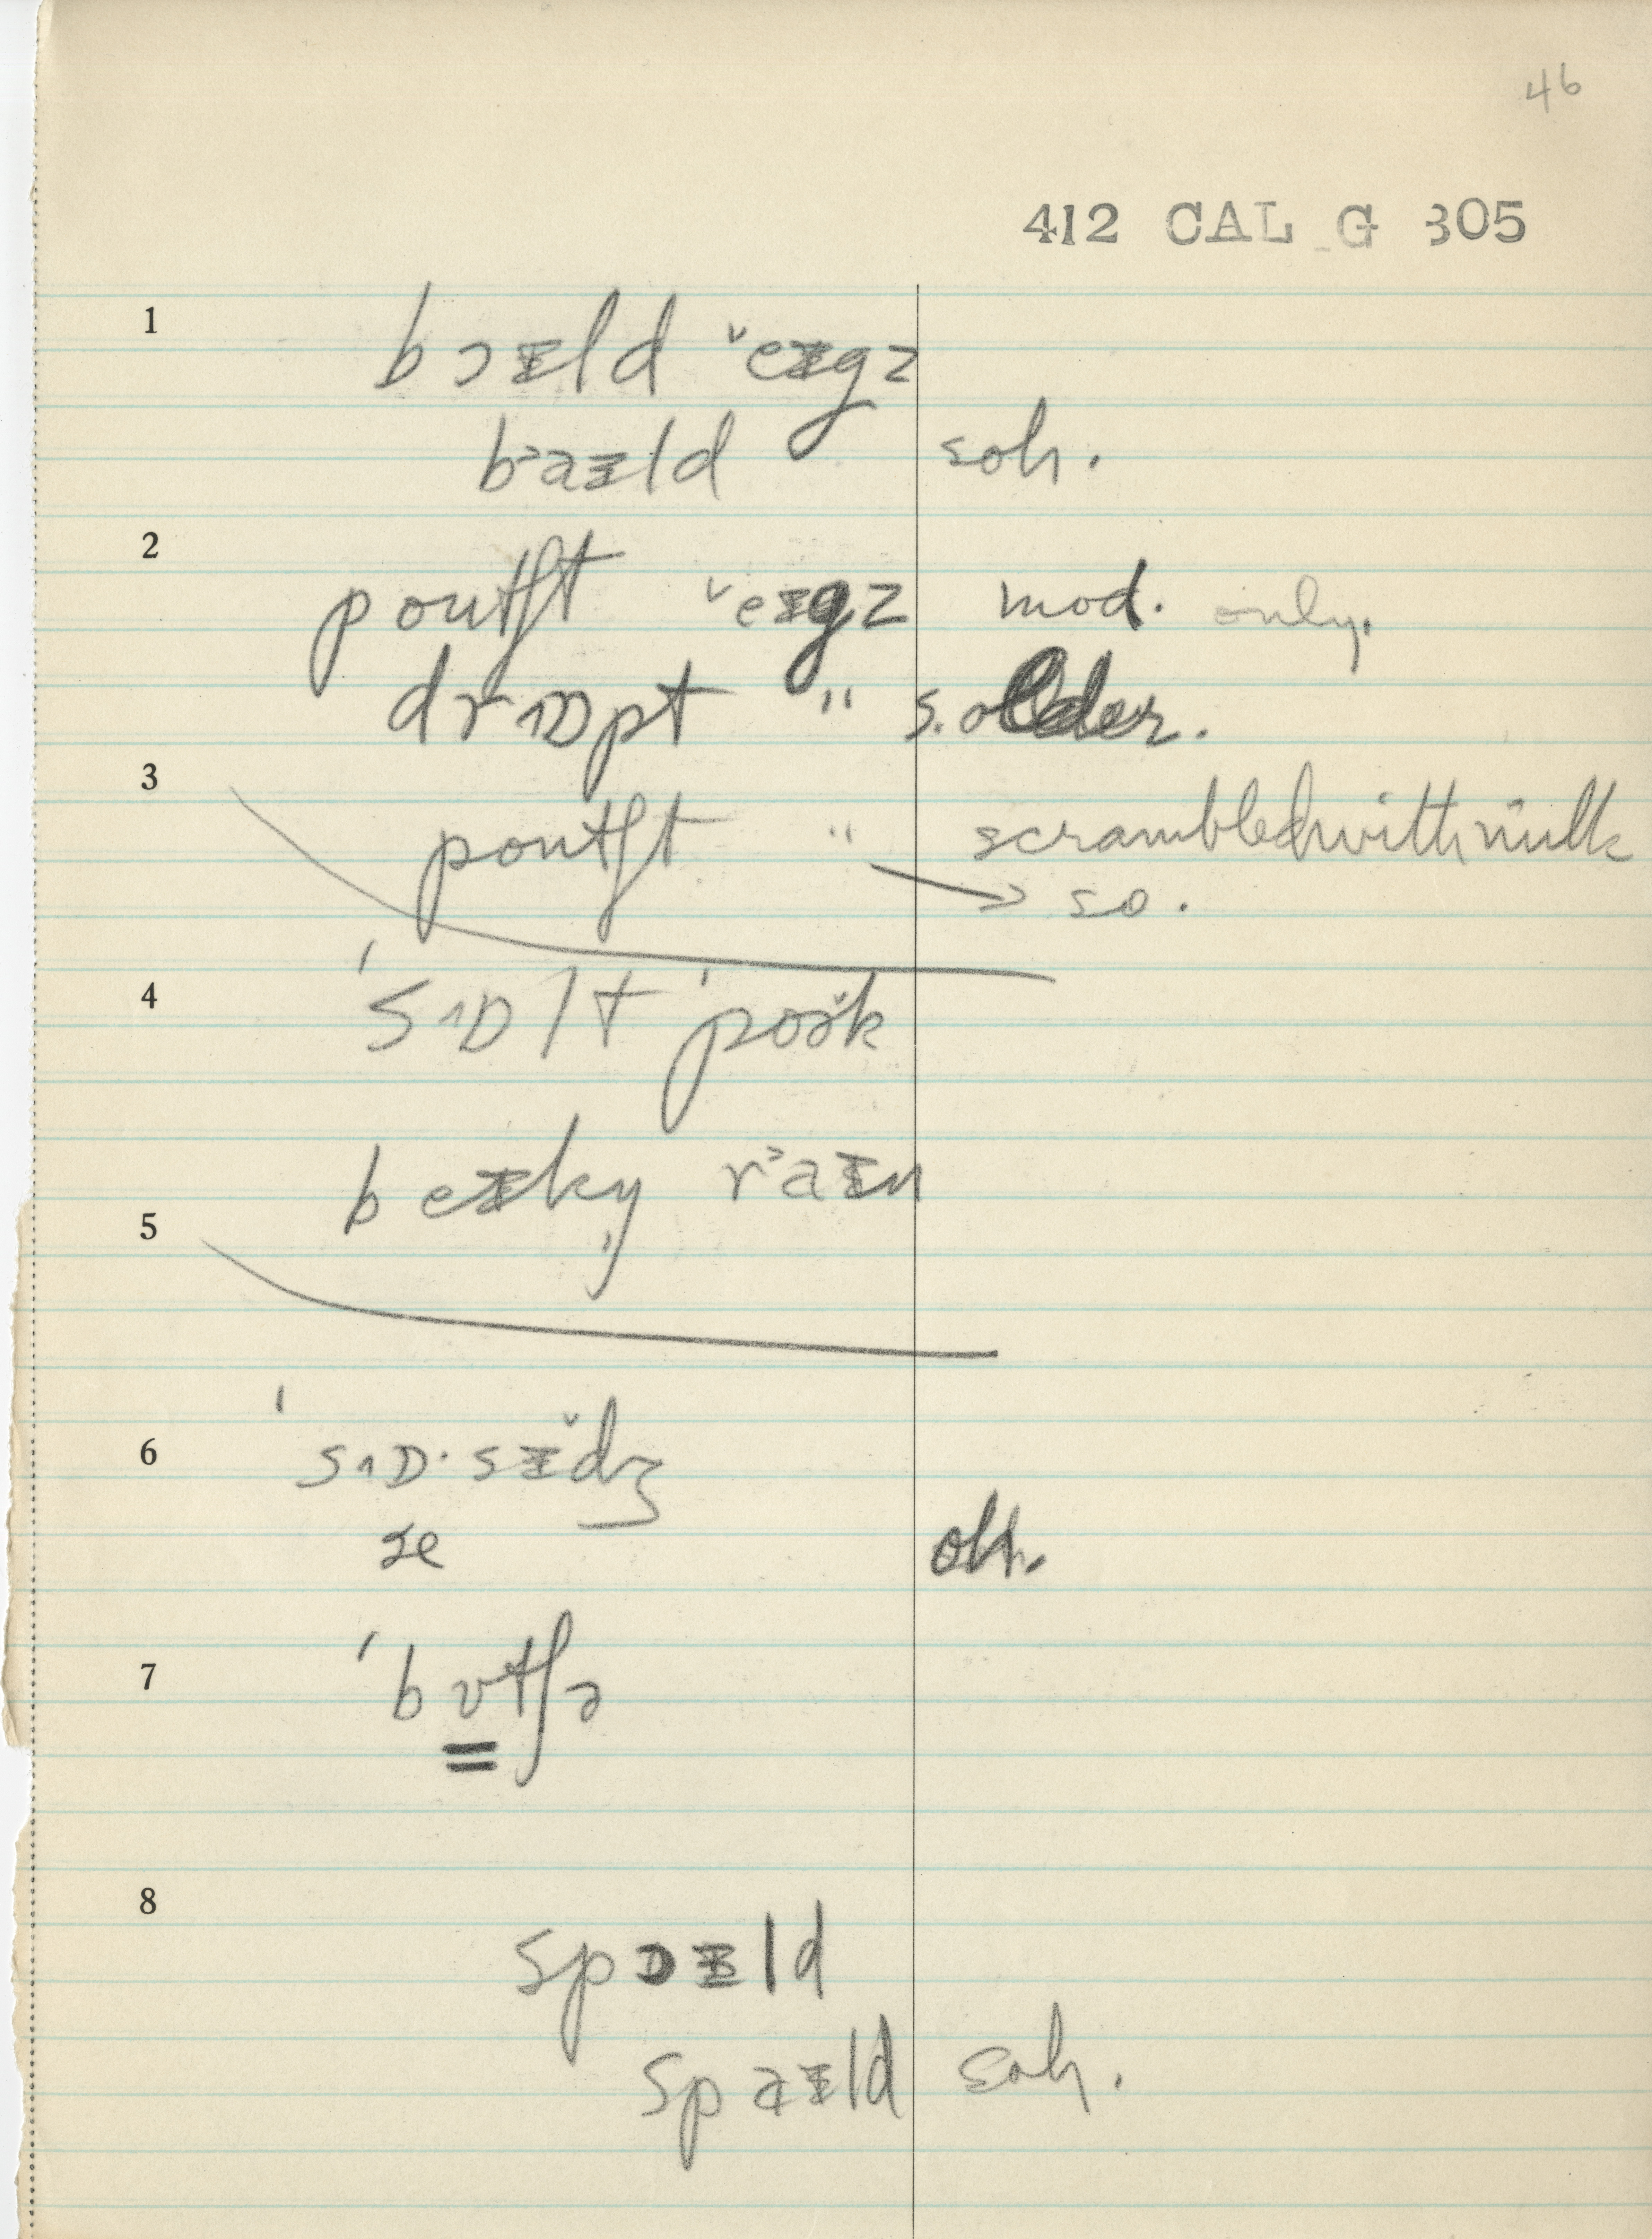 46
412 CAL G 305
1
bɔɪld ˇeɪgz
bᵓaɪld soh.
2
poutʃt ˇeɪgz mod. only.
drɒpt " s. older.
3
poutʃt " scrambled with milk
→ so.
4
ˈsɒlt ˈpoɚk
beɪky rᵓaɪn
5
6
ˈsɒ·sɪdʒ
7
ˈbʊtʃə
8
spɔɪld
spaɪld soh.